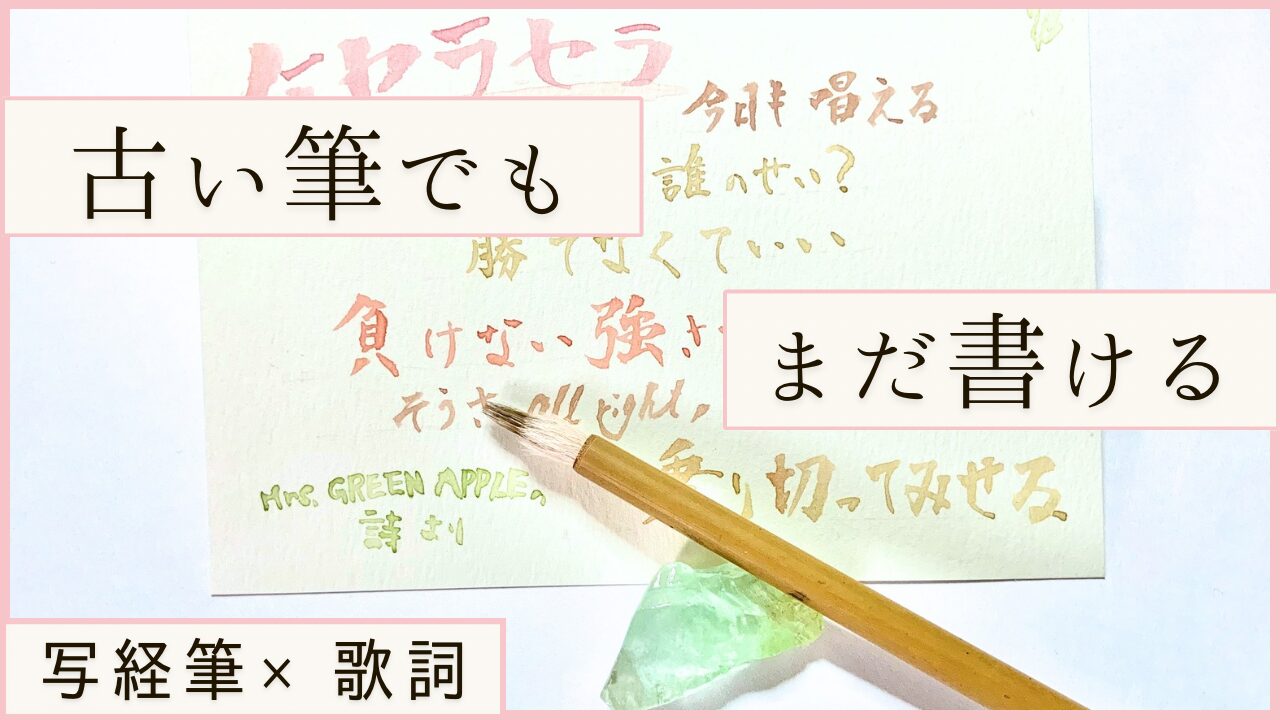 ケセラセラ
今日も唱える
古い筆でも
誰のせい?
勝てなくていい
負けない強さ
まだ書ける
そうさ all right,
乗り切ってみせる
Mrs. GREEN APPLE,
詩より
写経筆× 歌詞